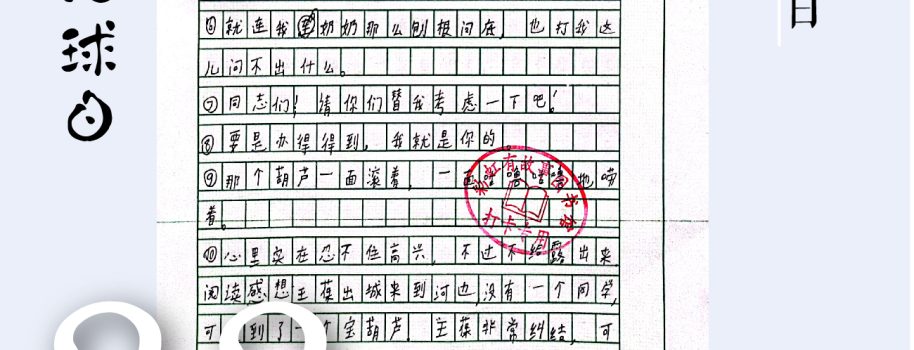 球日
日
⑥就连我奶奶那么刨根问底，也打我这
儿问不出什么。
⑦同志们！请你们替我考虑一下吧！
⑧要是办得得到，我就是你的。
⑨那个葫芦一面滚着，一面嘻嘻嘻嘻地唠
着。
彩虹有故事图书馆
打卡专用
⑩心里实在忍不住高兴，不过不给露出来
阅读感想王葆出城来到河边，没有一个同学，
可 到了一个宝葫芦．王葆非常纠结，可